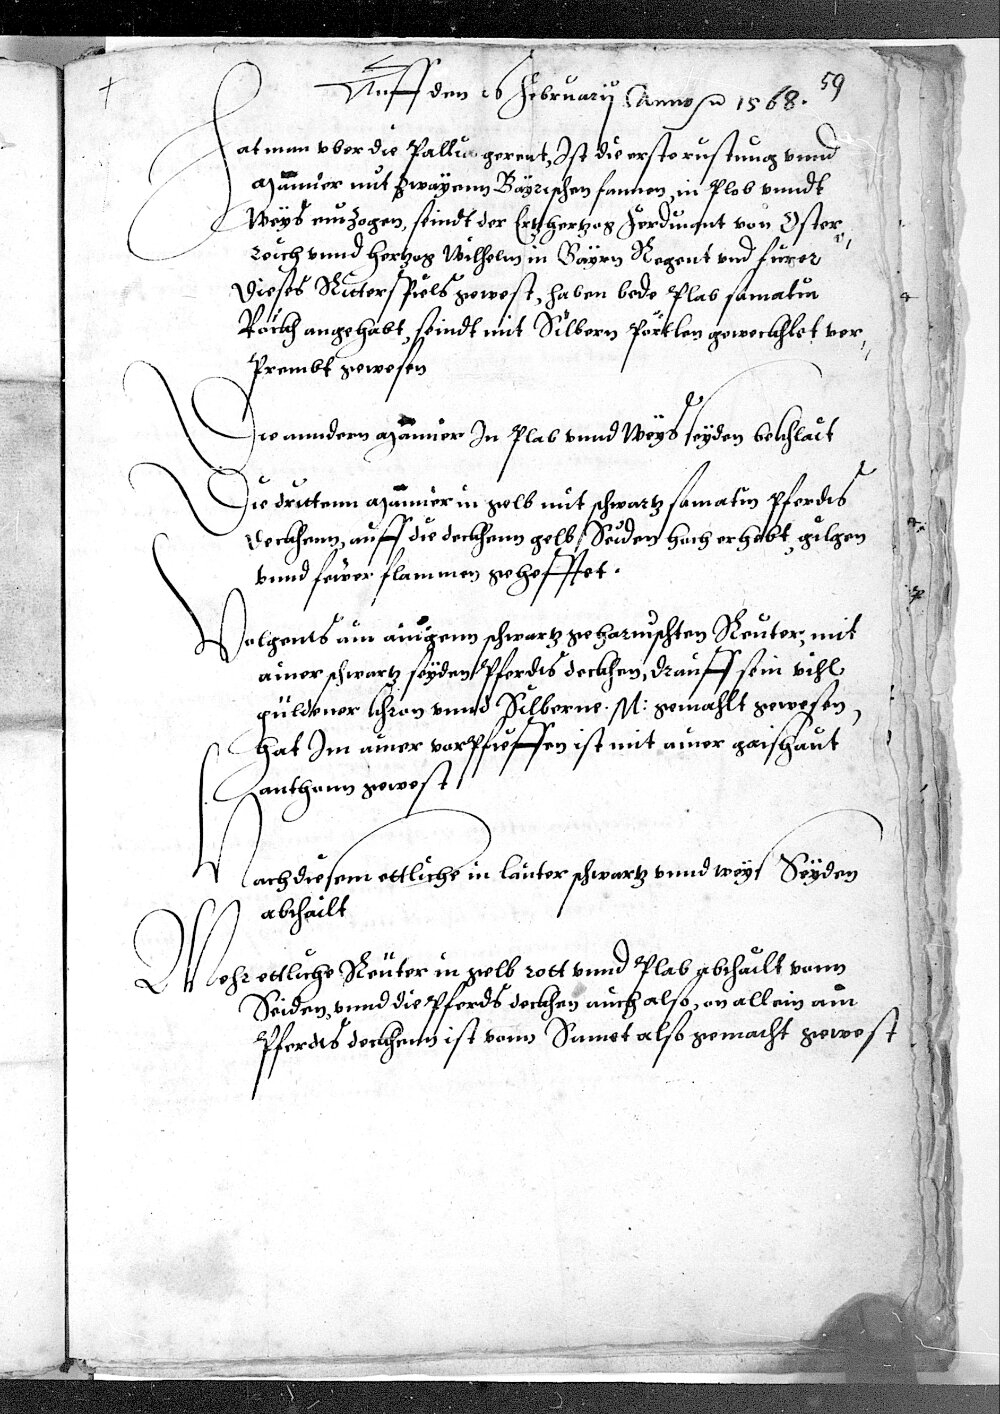 59
Auff den 16 February Anno [et]c 1568.
Hat man vber die Pallia gerent, Ist die erste rustung vnnd
Mannier mit zwayenn Bayrischen fannen, in Plob vnndt
Weys einzogen, seindt der Ertzhertzog Ferdinant von Oster,,
reich vnnd hertzog Wilhelm in Bayrn Regent vnd furer
dieses Ritterspiels gewest, haben bede Plab samatin
Röckh angehabt, seindt mit Silbern Pörtlen geweckhlet ver,,
Prembt gewesen
Die anndern Mannier In Plab vnnd Weys seyden bekhlait
Die drittenn Mannier in gelb mit schwartz samatin Pferdts
deckhenn, auff die deckhenn gelb Seiden hoch erhebt gilgen
vnnd feẅer flammen gehefftet.
Volgents ain aingenn schwartz geharnischten Reuter, mit
ainer schwartz seyden Pferdts deckhen, drauff sein vihl
guldener khron vnnd Silberne .M: gemahlt gewesen,
hat Im ainer vorpfieffen ist mit ainer gaishaut
anthonn gewest
Nach diesem ettliche in lauter schwartz vnnd weys Seyden
abthailt
Mehr ettliche Reuter in gelb rott vnnd Plab abthailt vonn
Seiden, vnnd die Pferds deckhen auch also, on allein ain
Pferdts deckhenn ist vonn Samet also gemacht gewest